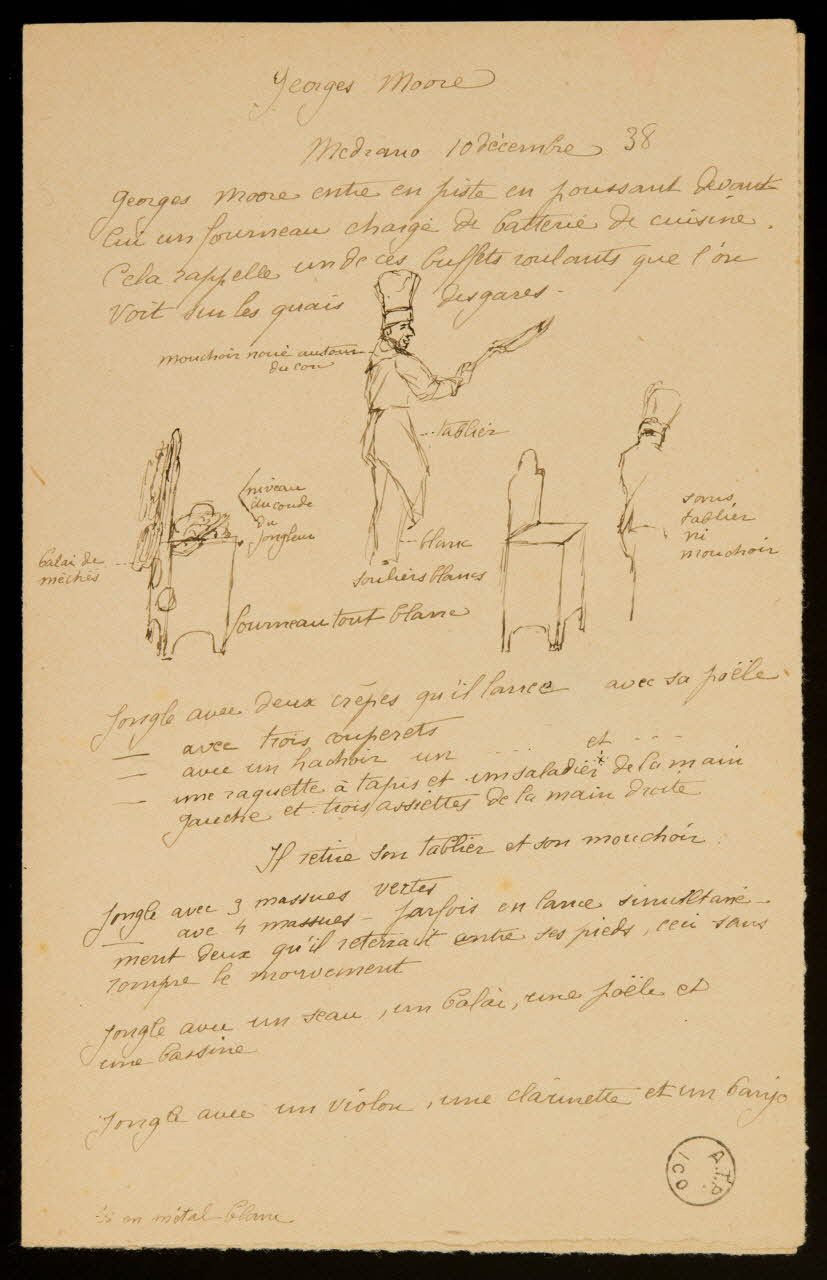 Georges Moore
Medrano 10 décembre 38
Georges Moore entre en piste en poussant devant
lui un fourneau chargé de batterie de cuisine.
Cela rappelle un de ces buffets roulants que l'on
voit sur les quais des gares -
mouchoir noué autour
du cou
tablier
niveau
du coude
du
jongleur
sans
tablier
ni
mouchoir
balai de
mèches
blanc
souliers blancs
fourneau tout blanc
Jongle avec deux crêpes qu'il lance avec sa poële
— avec trois couperets
— avec un hachoir un ... et ...
— une raquette à tapis et un saladier* de la main
gauche et trois assiettes de la main droite
Il retire son tablier et son mouchoir.
Jongle avec 3 massues vertes
— avec 4 massues - parfois en lance simultané-
ment deux qu'il
entre ses pieds, ceci sans
rompre le mouvement
Jongle avec un seau, un balai, une poële et
une bassine
Jongle avec un violon, une clarinette et un banjo
A.T.P.
ICO
en métal blanc